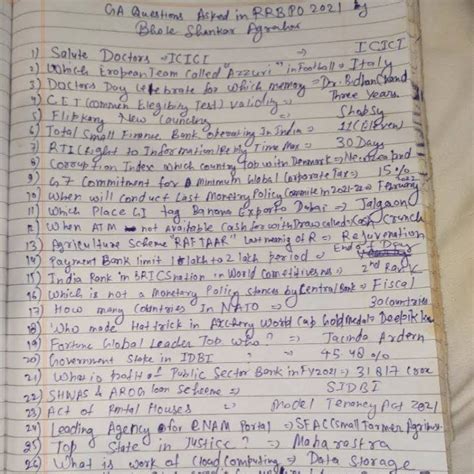 GA Questions Asked in RRBPO 2021 by
Bhole Shankar Agrahari
1) Salute Doctors → ICICI → ICICI
2) Which Eropean Team Called "Azzuri" in Football → Italy
3) Doctors Day celebrate for which memory → Dr. Bidhan Chand
4) CET (Common Elegibility Test) validity → Three Years
5) Flipkary New Launching → Shopsy
6) Total Small Finance Bank operating In India → 11 (Eleven)
7) RTI (Right to Information) Reply Time Max → 30 Days
8) Corruption Index which country Top with Denmark → Newzealand
9) G7 Commitment for a Minimum Global Corporate Tax → 15%
10) When will conduct Last Monetry Policy Committe in 2021-22 → February 2022
11) Which Place GI tag Banana Export to Dubai → Jalgaon
12) When ATM not Available Cash for withdraw called → Cash Crunch
13) Agriculture Scheme "RAFTAAR" Last meaning of R → Rejuvenation
14) Payment Bank limit 1 lakh to 2 lakh period → End of Day
15) India Rank in BRICS nation in World Competitiveness → 2nd Rank
16) Which is not a Monetary Policy stances by Central Bank → Fiscal
17) How many Countries In NATO → 30 countries
18) Who made Hat trick in Archery World Cup Gold medal → Deepika
19) Fortune Global Leader Top who? → Jacinda Ardern
20) Government Stake in IDBI → 45.48%
21) What is profit of Public Sector Bank in FY2021 → 31817 crore
22) SHWAS & AROG loan Scheme → SIDBI
23) Act of Rental Houses → Model Tenency Act 2021
24) Leading Agency for eNAM Portal → SFAC (Small Farmer Agribus
25) Top State in Justice? → Maharastra
26) What is work of Cloud Computing → Data Storage